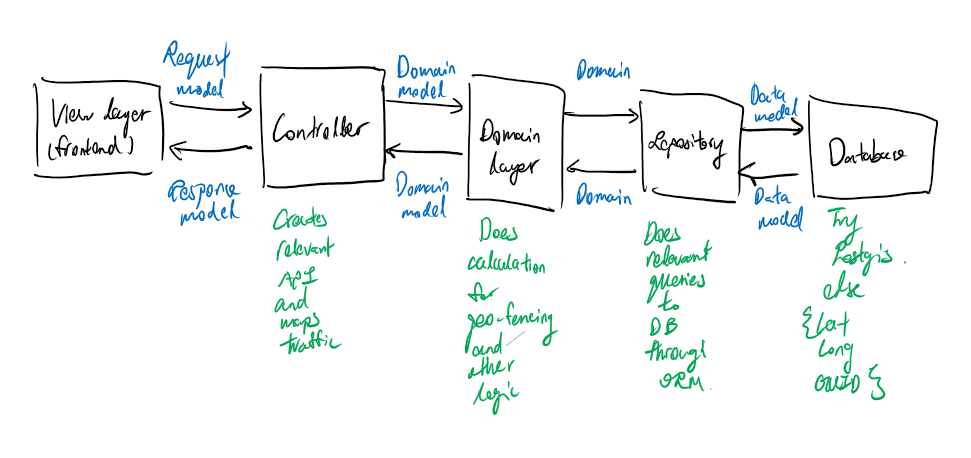 Request
model
View layer
(frontend)
Response
model
Controller
Creates
relevant
API
and
maps
traffic
Domain
model
Domain
model
Domain
layer
Does
calculation
for
geo-fencing
and
other
logic
Domain
Domain
Repository
Does
relevant
queries
to
DB
through
ORM.
Data
model
Data
model
Database
Try
Postgis.
else
{Lat
Long
GUID}